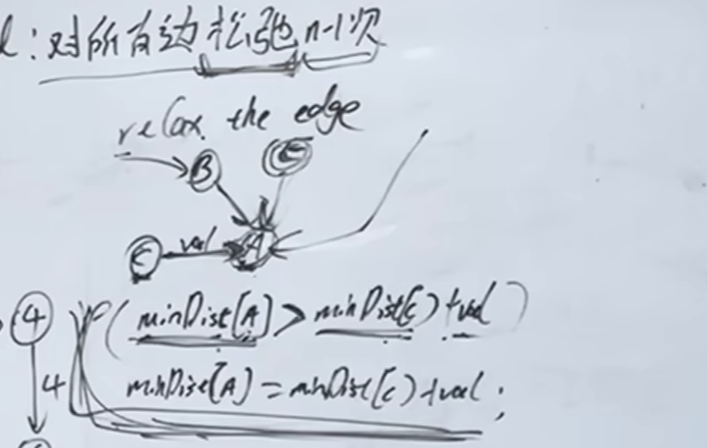 对所有边松弛 n-1次
relax the edge
B E
C val A
4 if (minDist[A] > minDist[C] + val)
4 minDist[A] = minDist[C] + val;